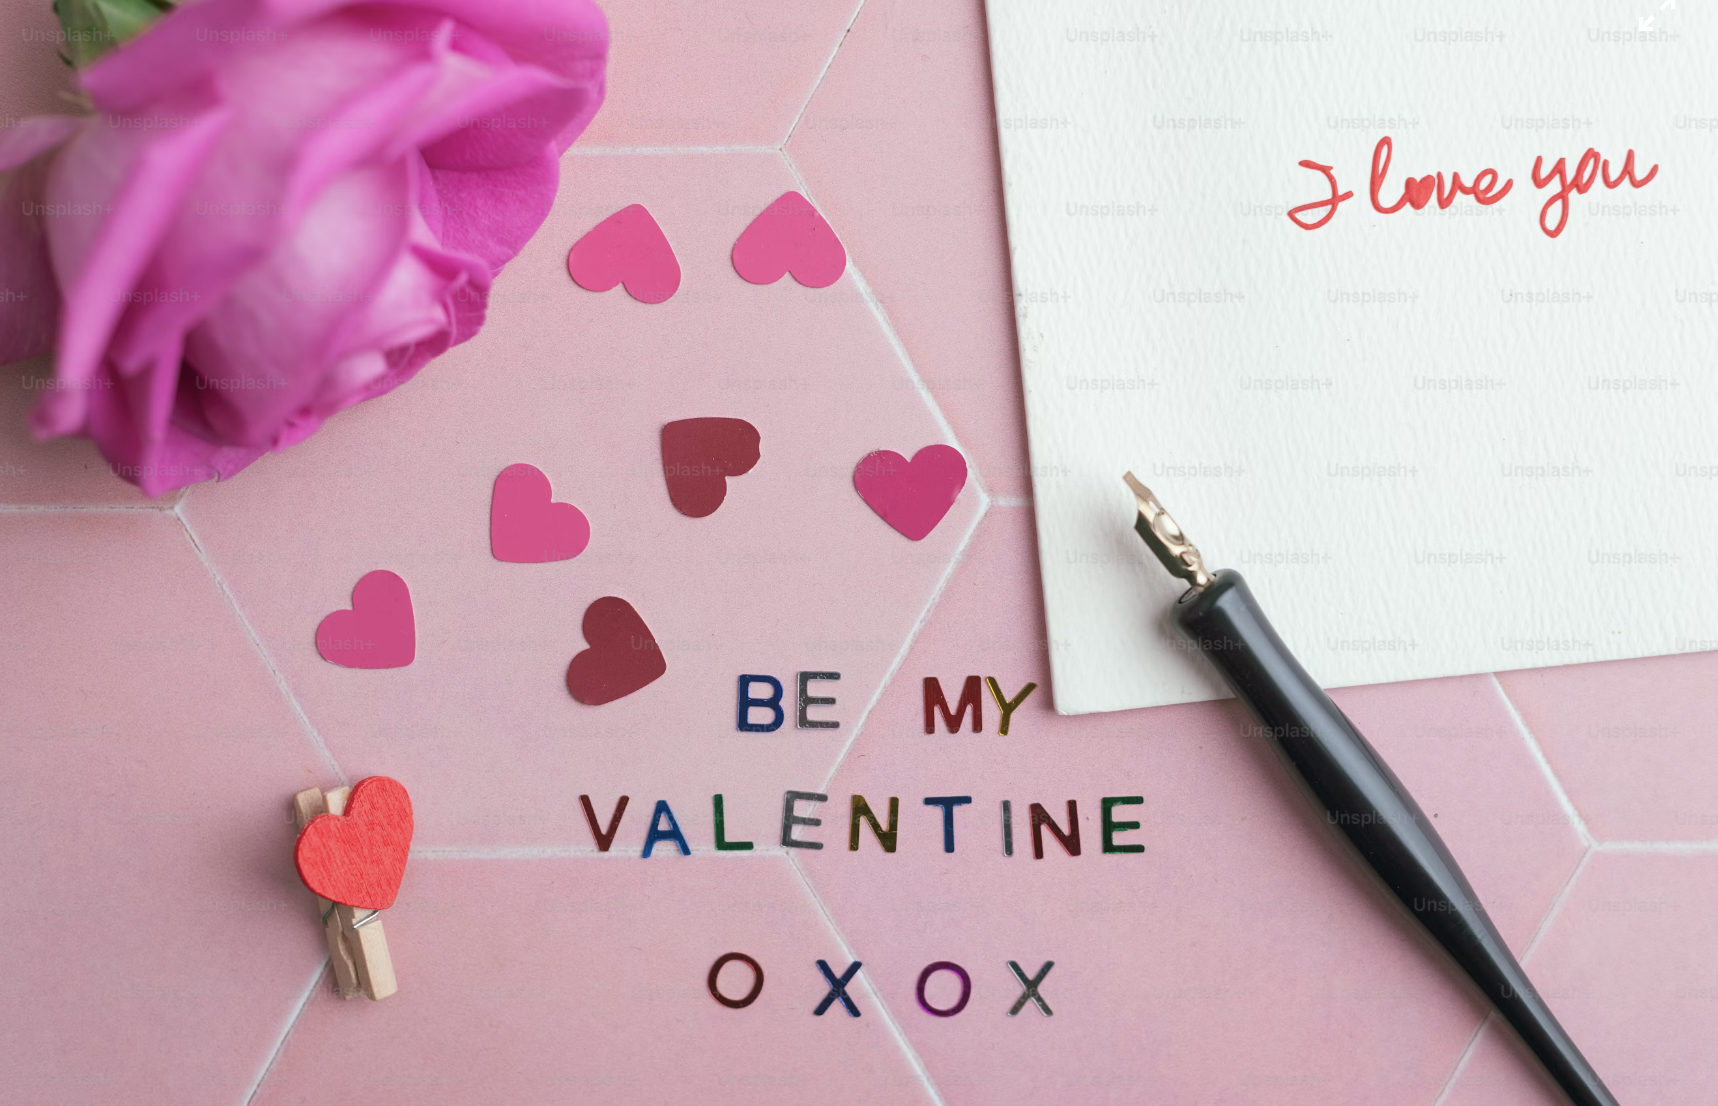 I love you
BE MY
VALENTINE
OXOX
Unsplash+